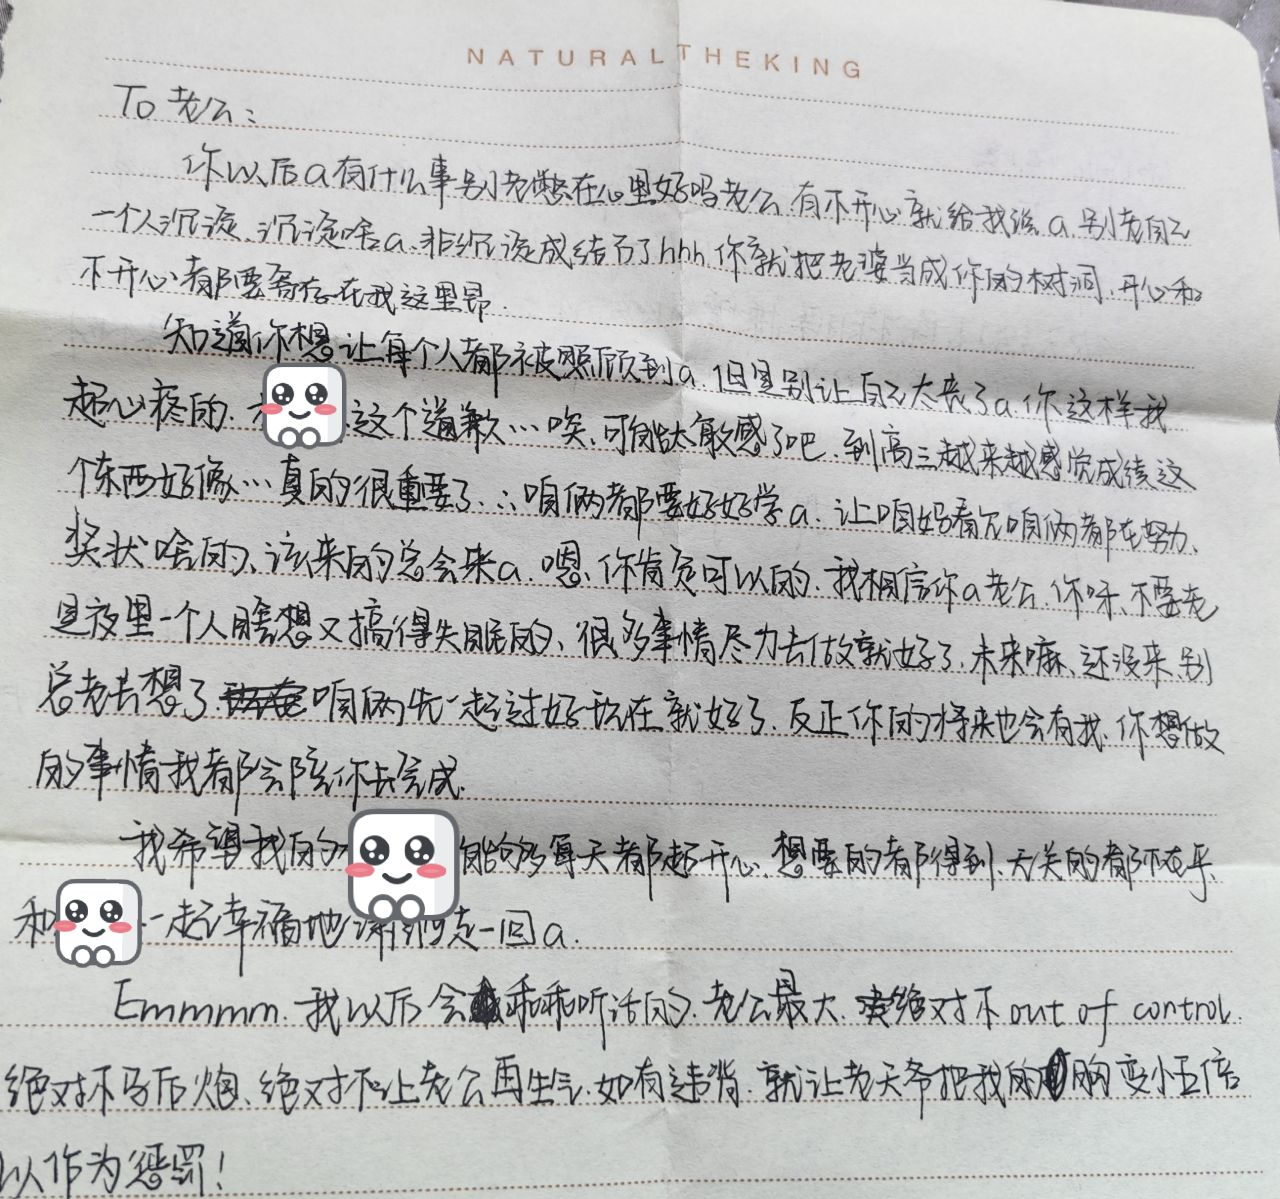 NATURALTHEKING
To 老公：
你以后a有什么事别老憋在心里好吗老公.有不开心就给我说a.别老自己
一个人沉淀、沉淀啥a.非沉淀成结石了hhh.你就把老婆当成你的树洞.开心和
不开心都要寄存在我这里昂.
知道你想让每个人都被照顾到a.但是别让自己太丧了a.你这样我
起心疼的. 这个道歉…唉、可能太敏感了吧.到高三越来越感觉成绩这
个东西好像…真的很重要了.∴咱俩都要好好学a.让咱妈看见咱俩都在努力、
奖状啥的、该来的总会来a.嗯、你肯定可以的.我相信你a老公.你呀、不要老
是夜里一个人瞎想又搞得失眠的、很多事情尽力去做就好了.未来嘛、还没来.别
总老去想了 咱俩先一起过好现在就好了.反正你的将来也会有我.你想做
的事情我都会陪你去完成.
我希望我的 能够每天都超开心.想要的都得到、无关的都不在乎.
和 一起幸福地 走一回a.
Emmmm.我以后会乖乖听话的.老公最大.绝对不out of control.
绝对不马后炮、绝对不让老公再生气.如有违背.就让老天爷把我的胸变小五倍
以作为惩罚！